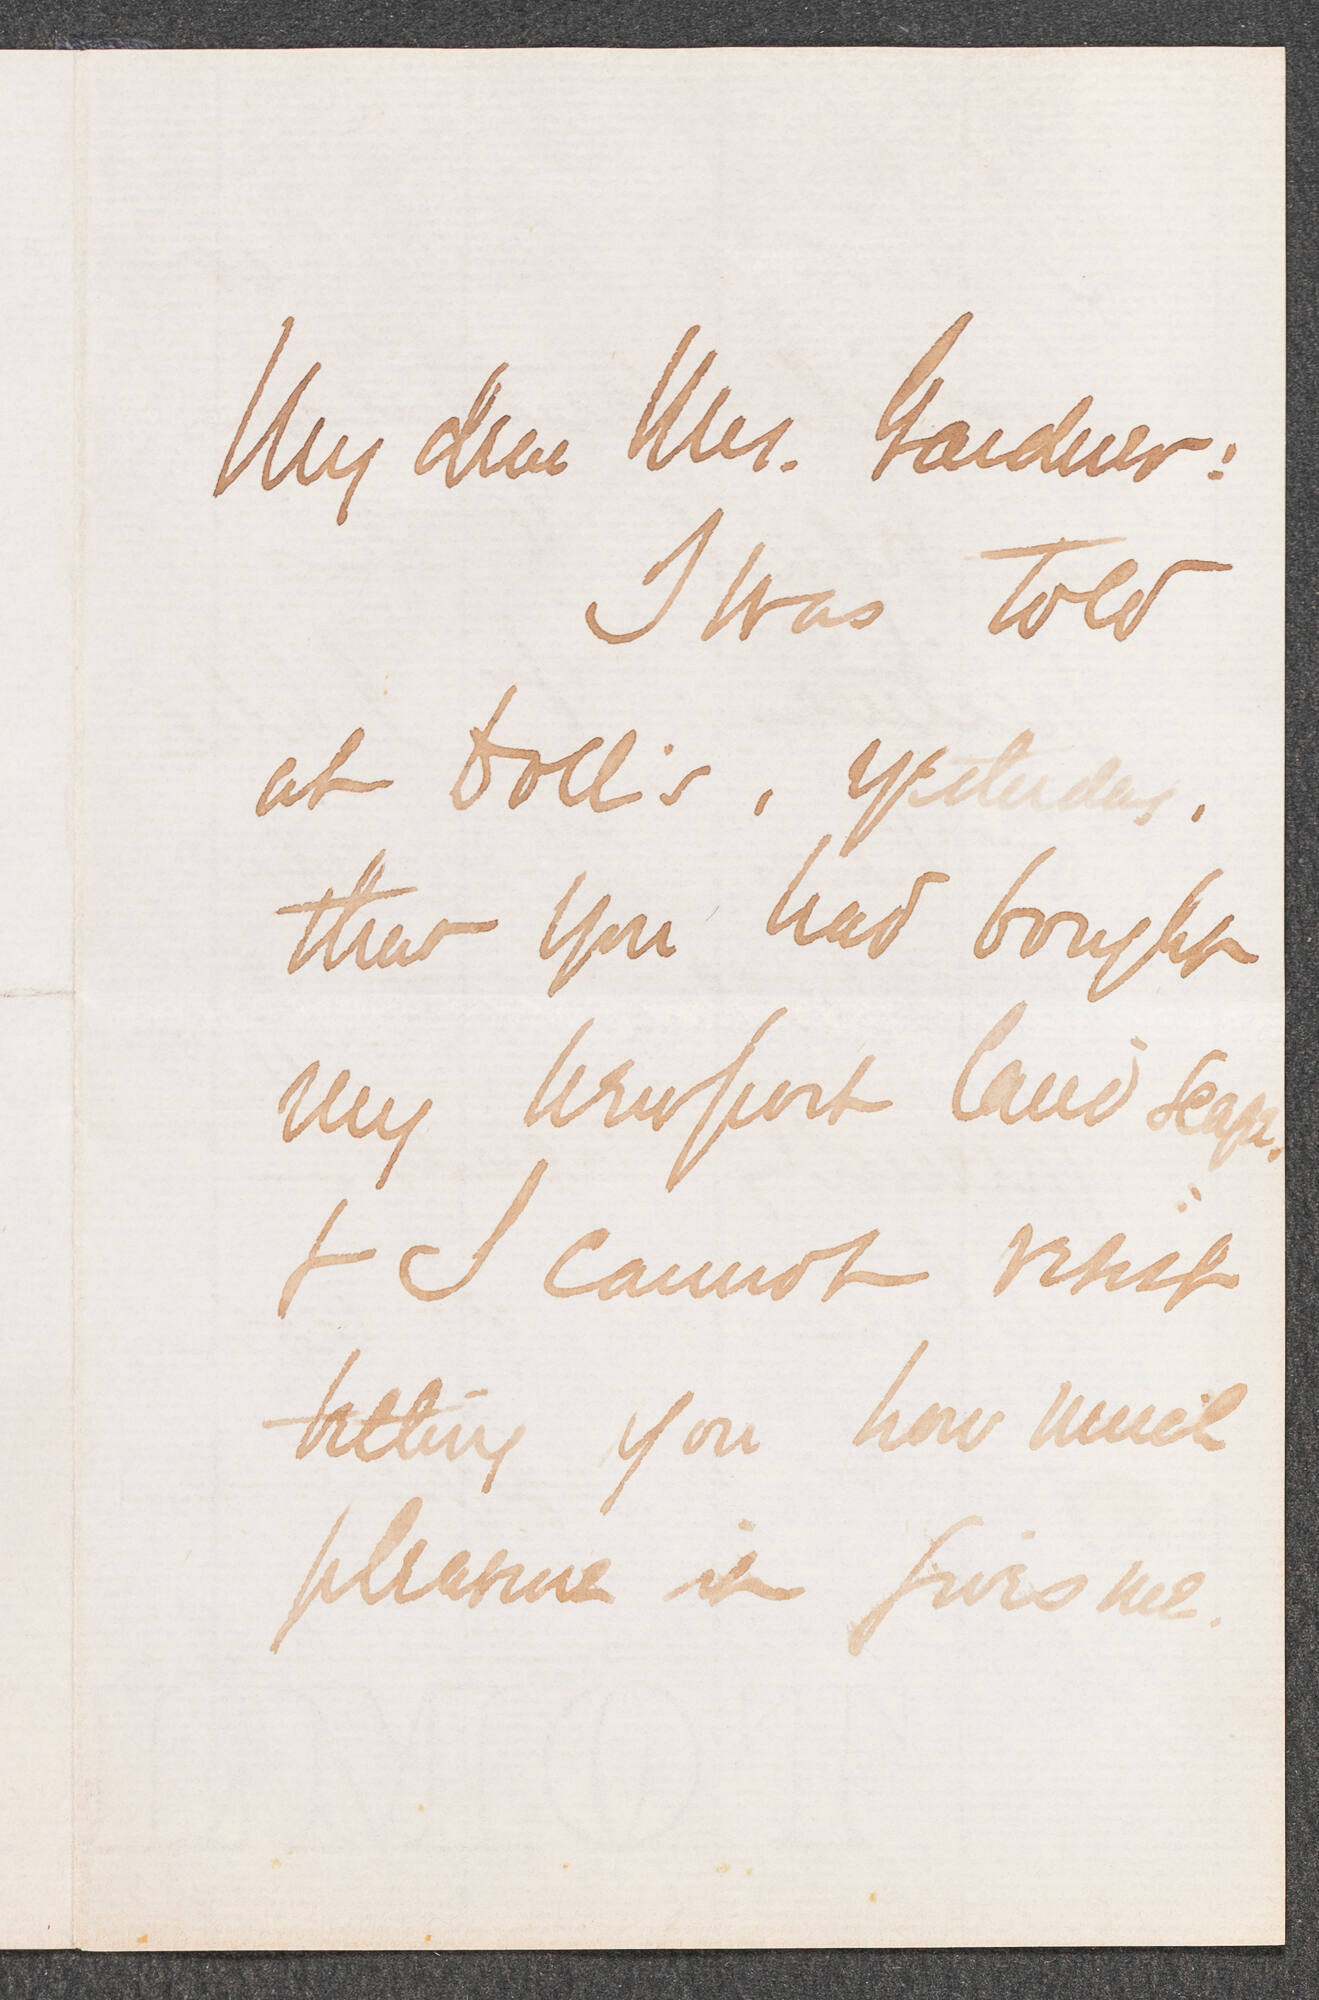 My dear Mrs. Gardner:
I was told
at Doll's, yesterday,
that you had bought
my Newport landscape,
& I cannot resist
telling you how much
pleasure it gives me.